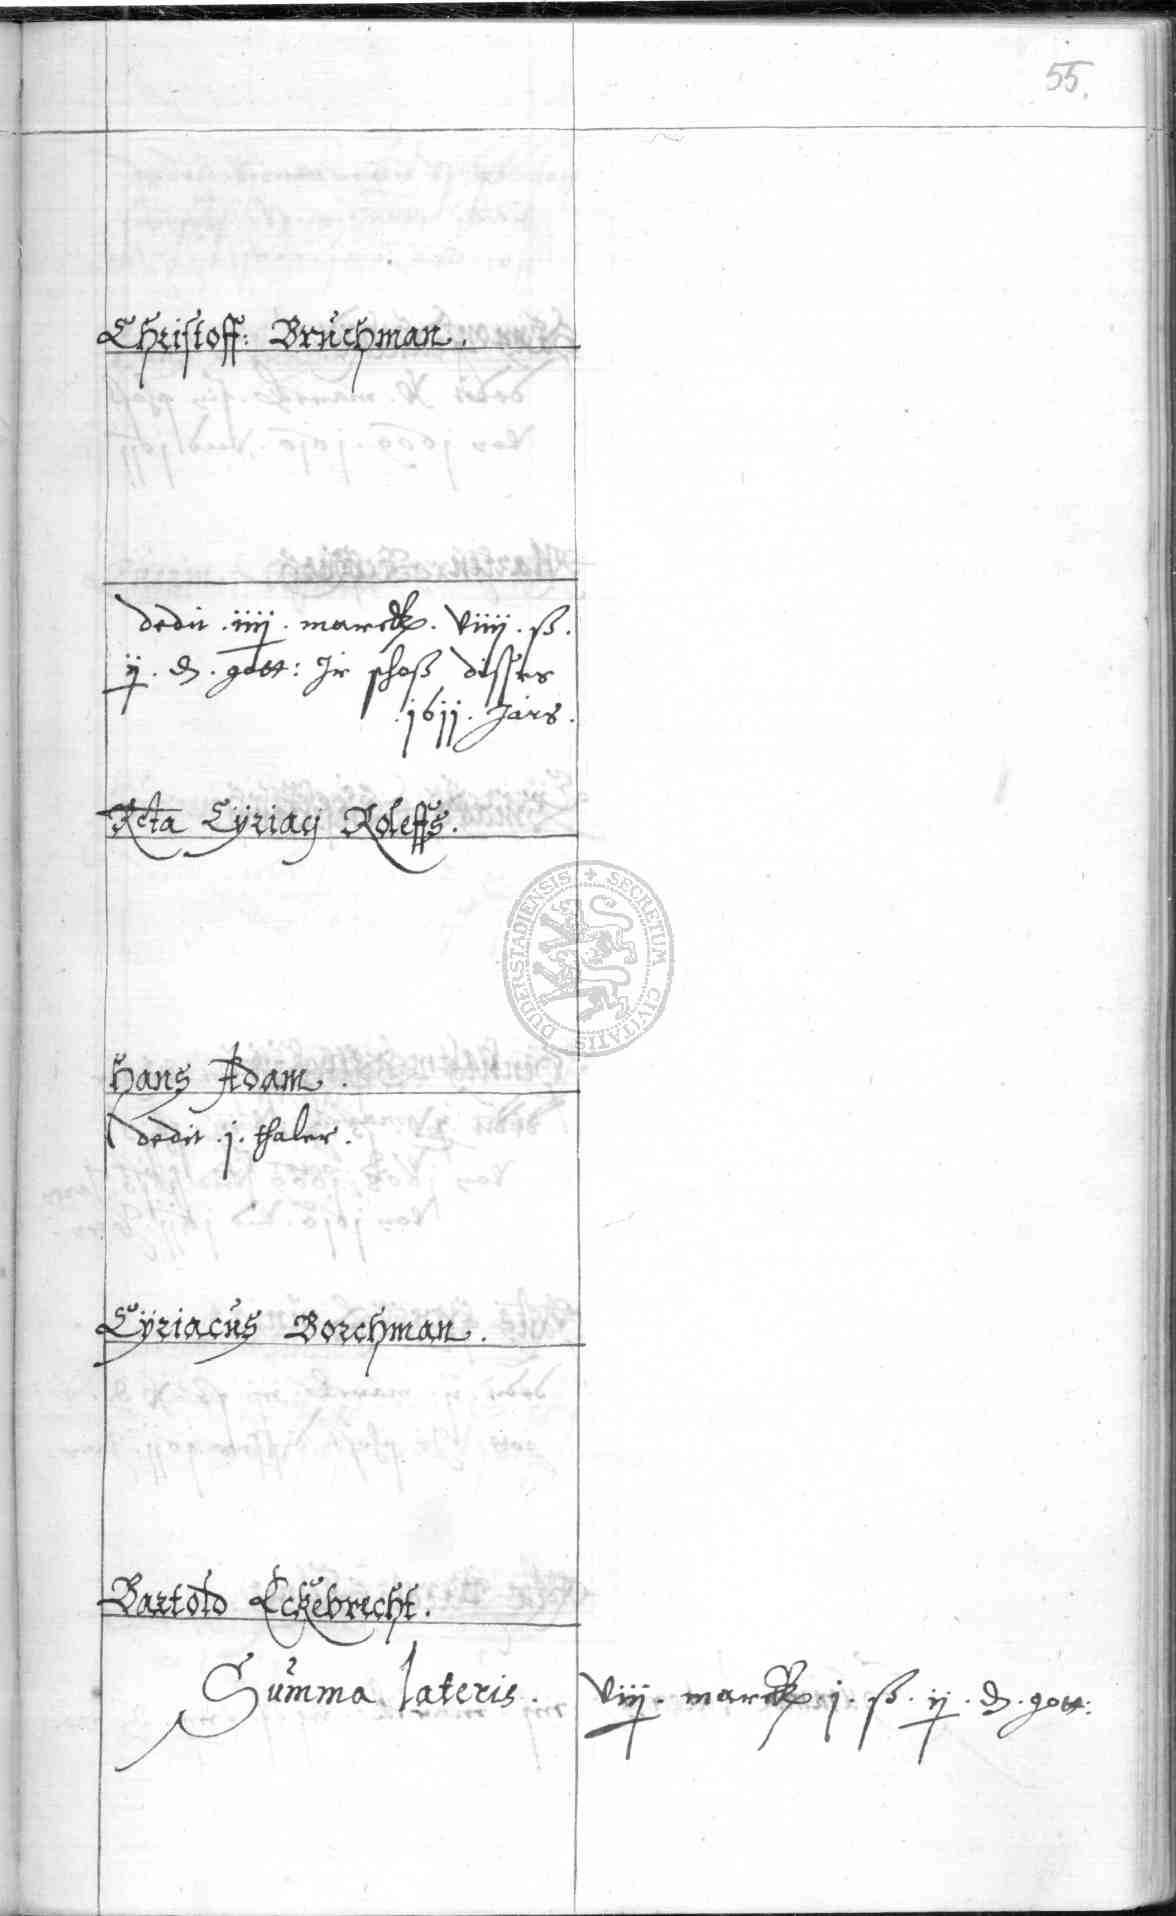 55.
Christoff: Bruchman.
dedit .iiij. marck. viiij. ß.
ij. d. gott: Ir schoß disses
.1611. Jars.
Rcta Cÿriacj Roleffs.
DUDERSTADIENSIS + SECRETUM CIVITATIS
Hans Adam.
dedit .j. thaler.
Cÿriacus Borchman.
Bartold Eckebrecht.
Summa lateris. viij. marck. j. ß. ij. d. gott: